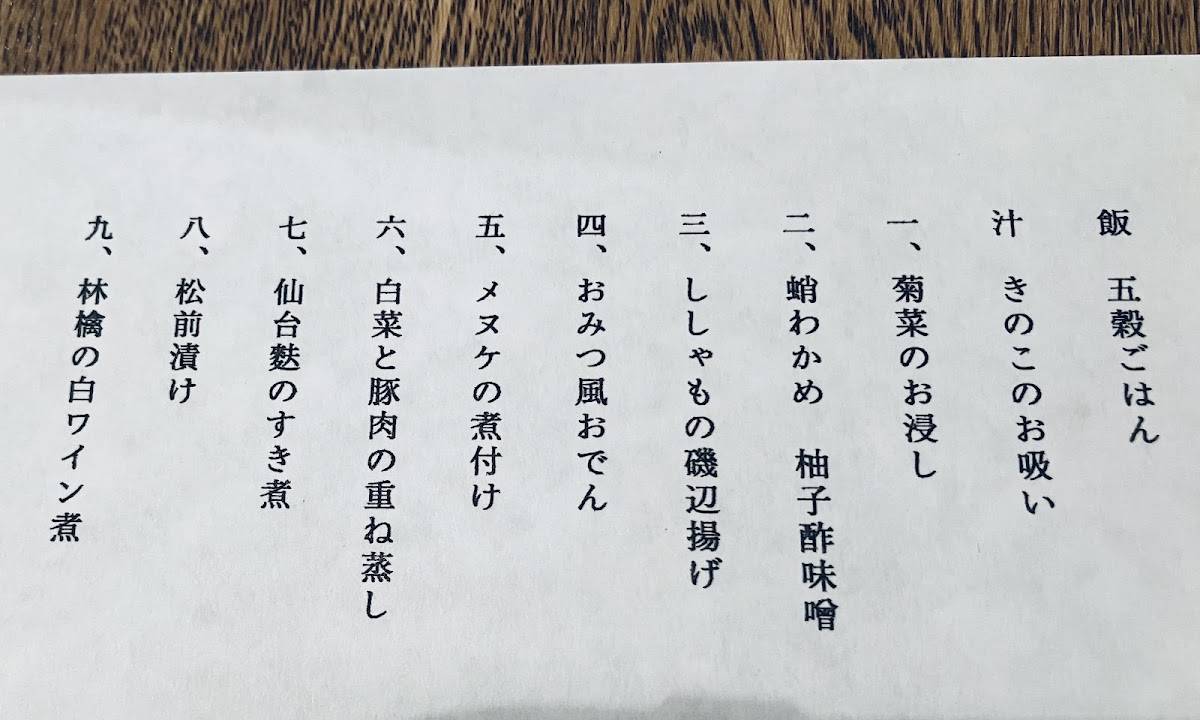 飯 五穀ごはん
汁 きのこのお吸い
一、菊菜のお浸し
二、蛸わかめ 柚子酢味噌
三、ししゃもの磯辺揚げ
四、おみつ風おでん
五、メヌケの煮付け
六、白菜と豚肉の重ね蒸し
七、仙台麩のすき煮
八、松前漬け
九、林檎の白ワイン煮